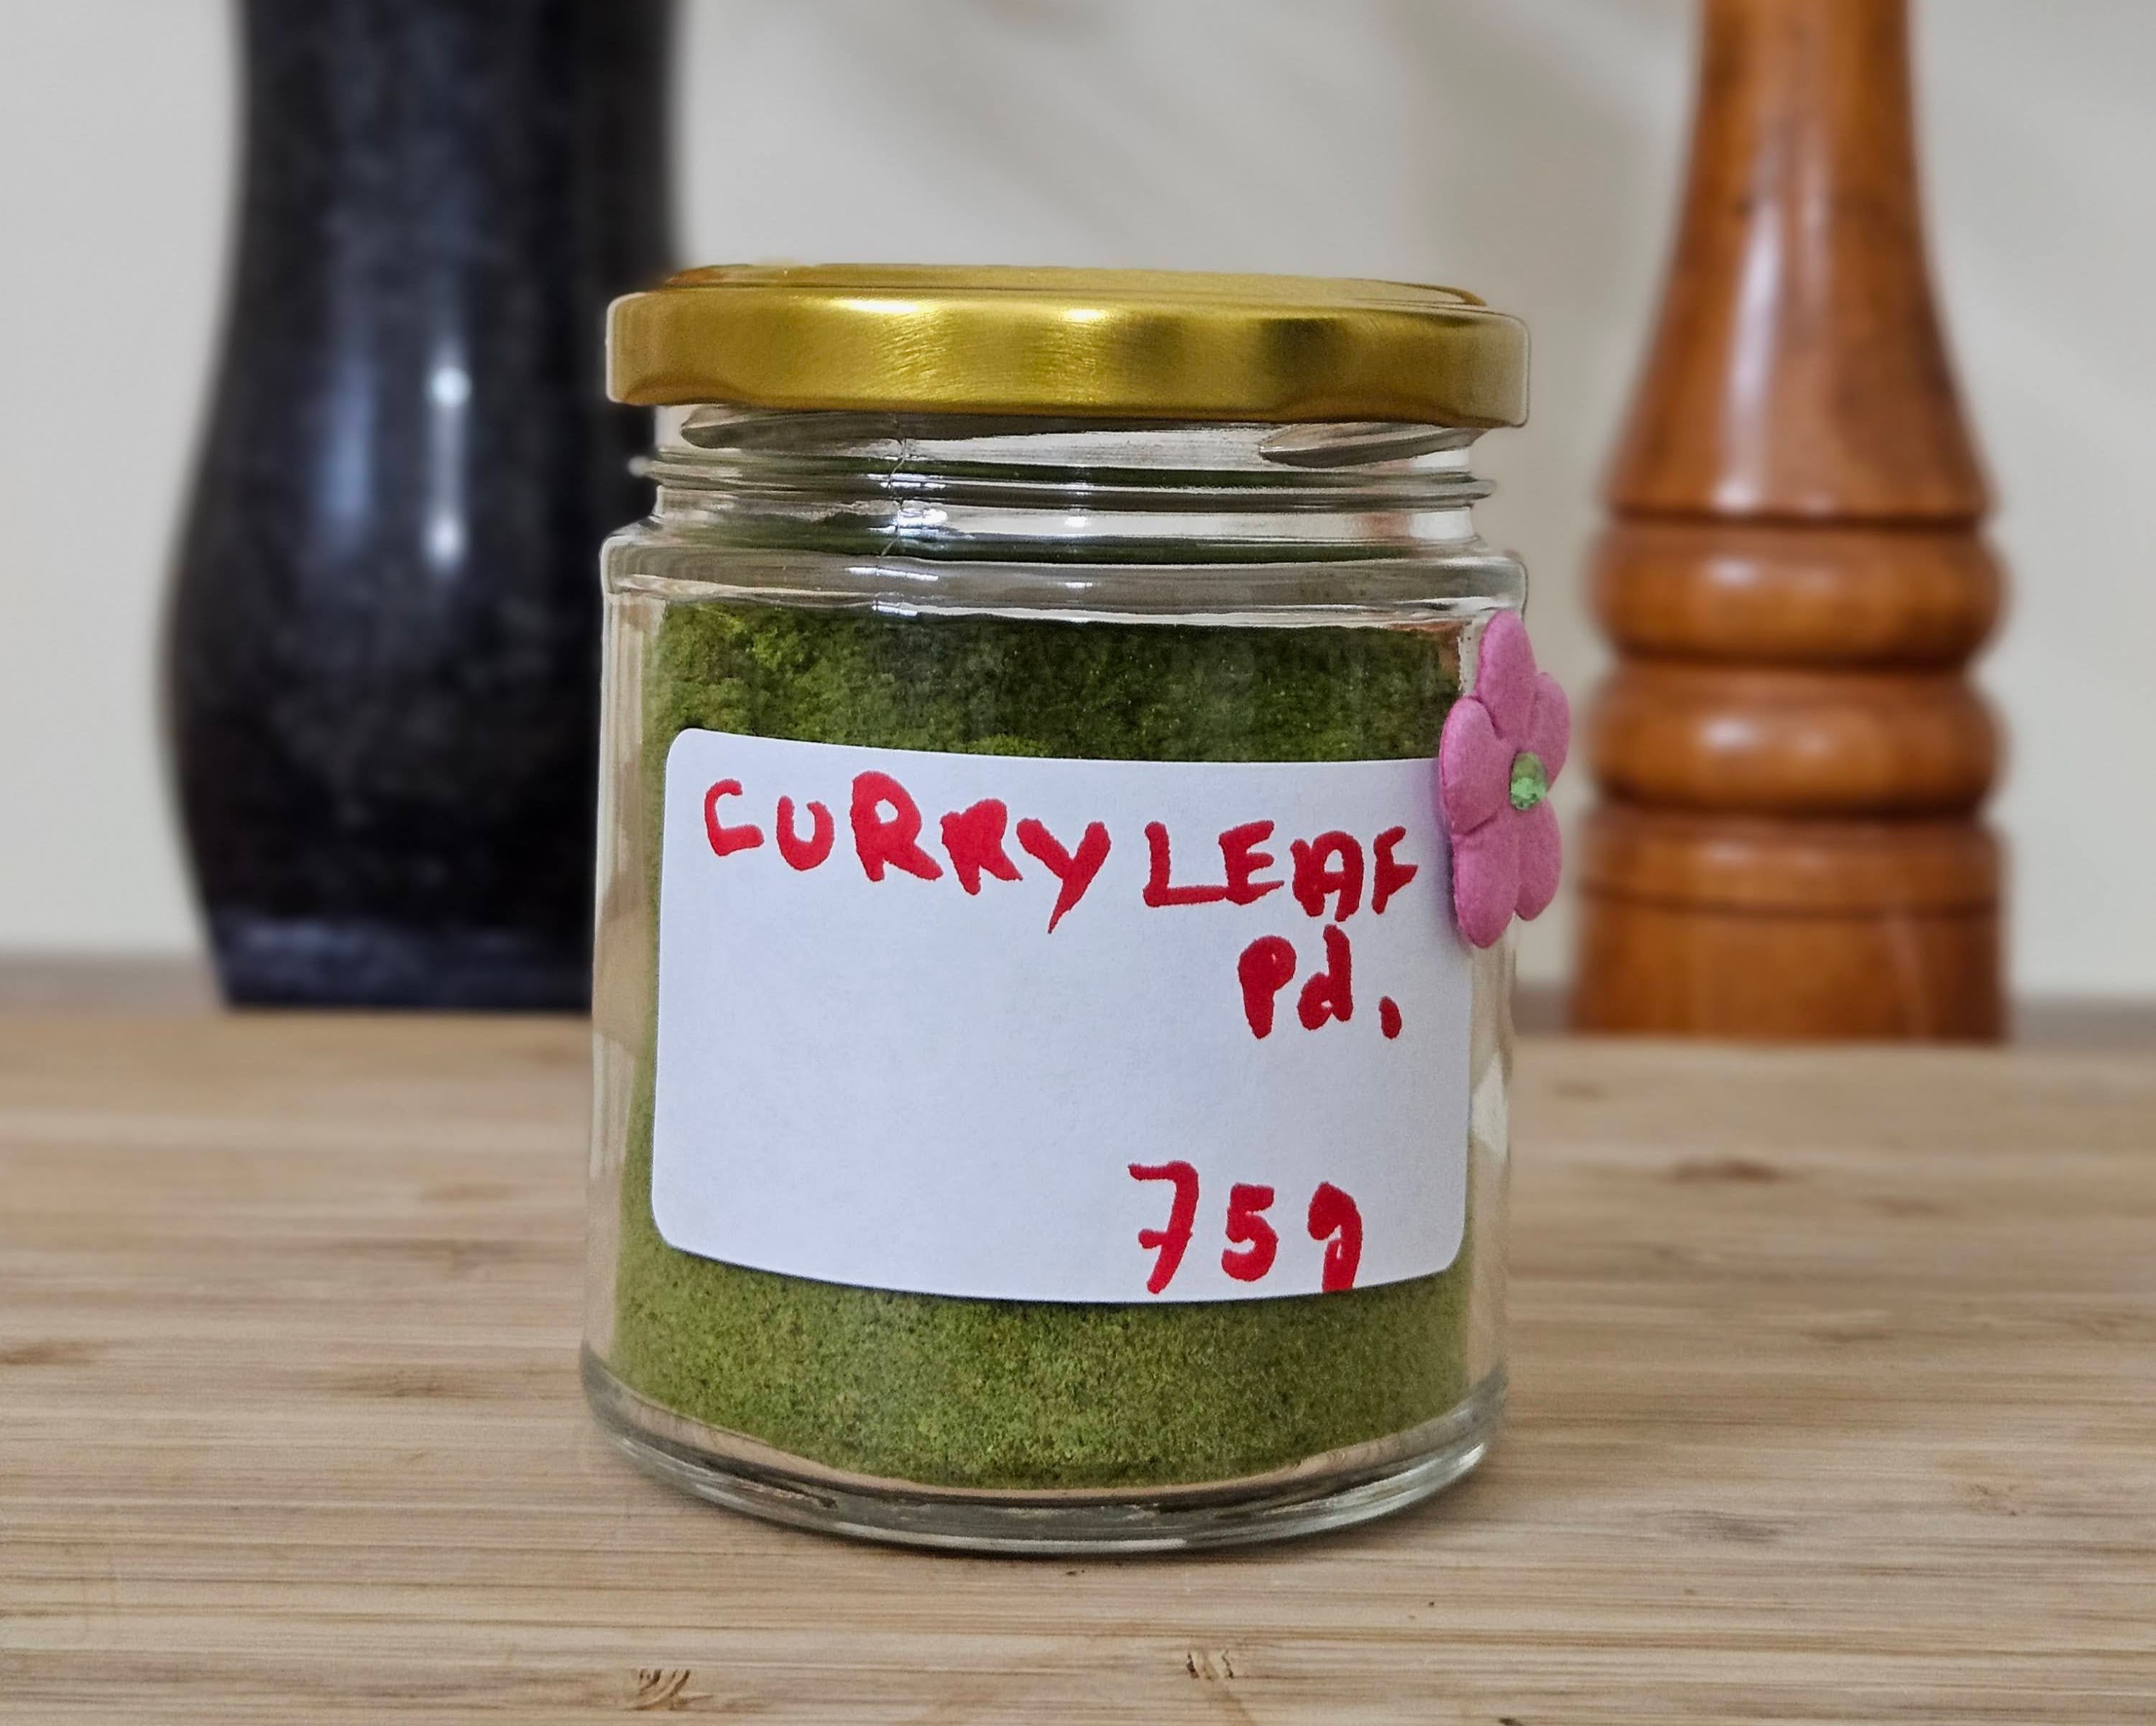 CURRY LEAF
Pd.
75g